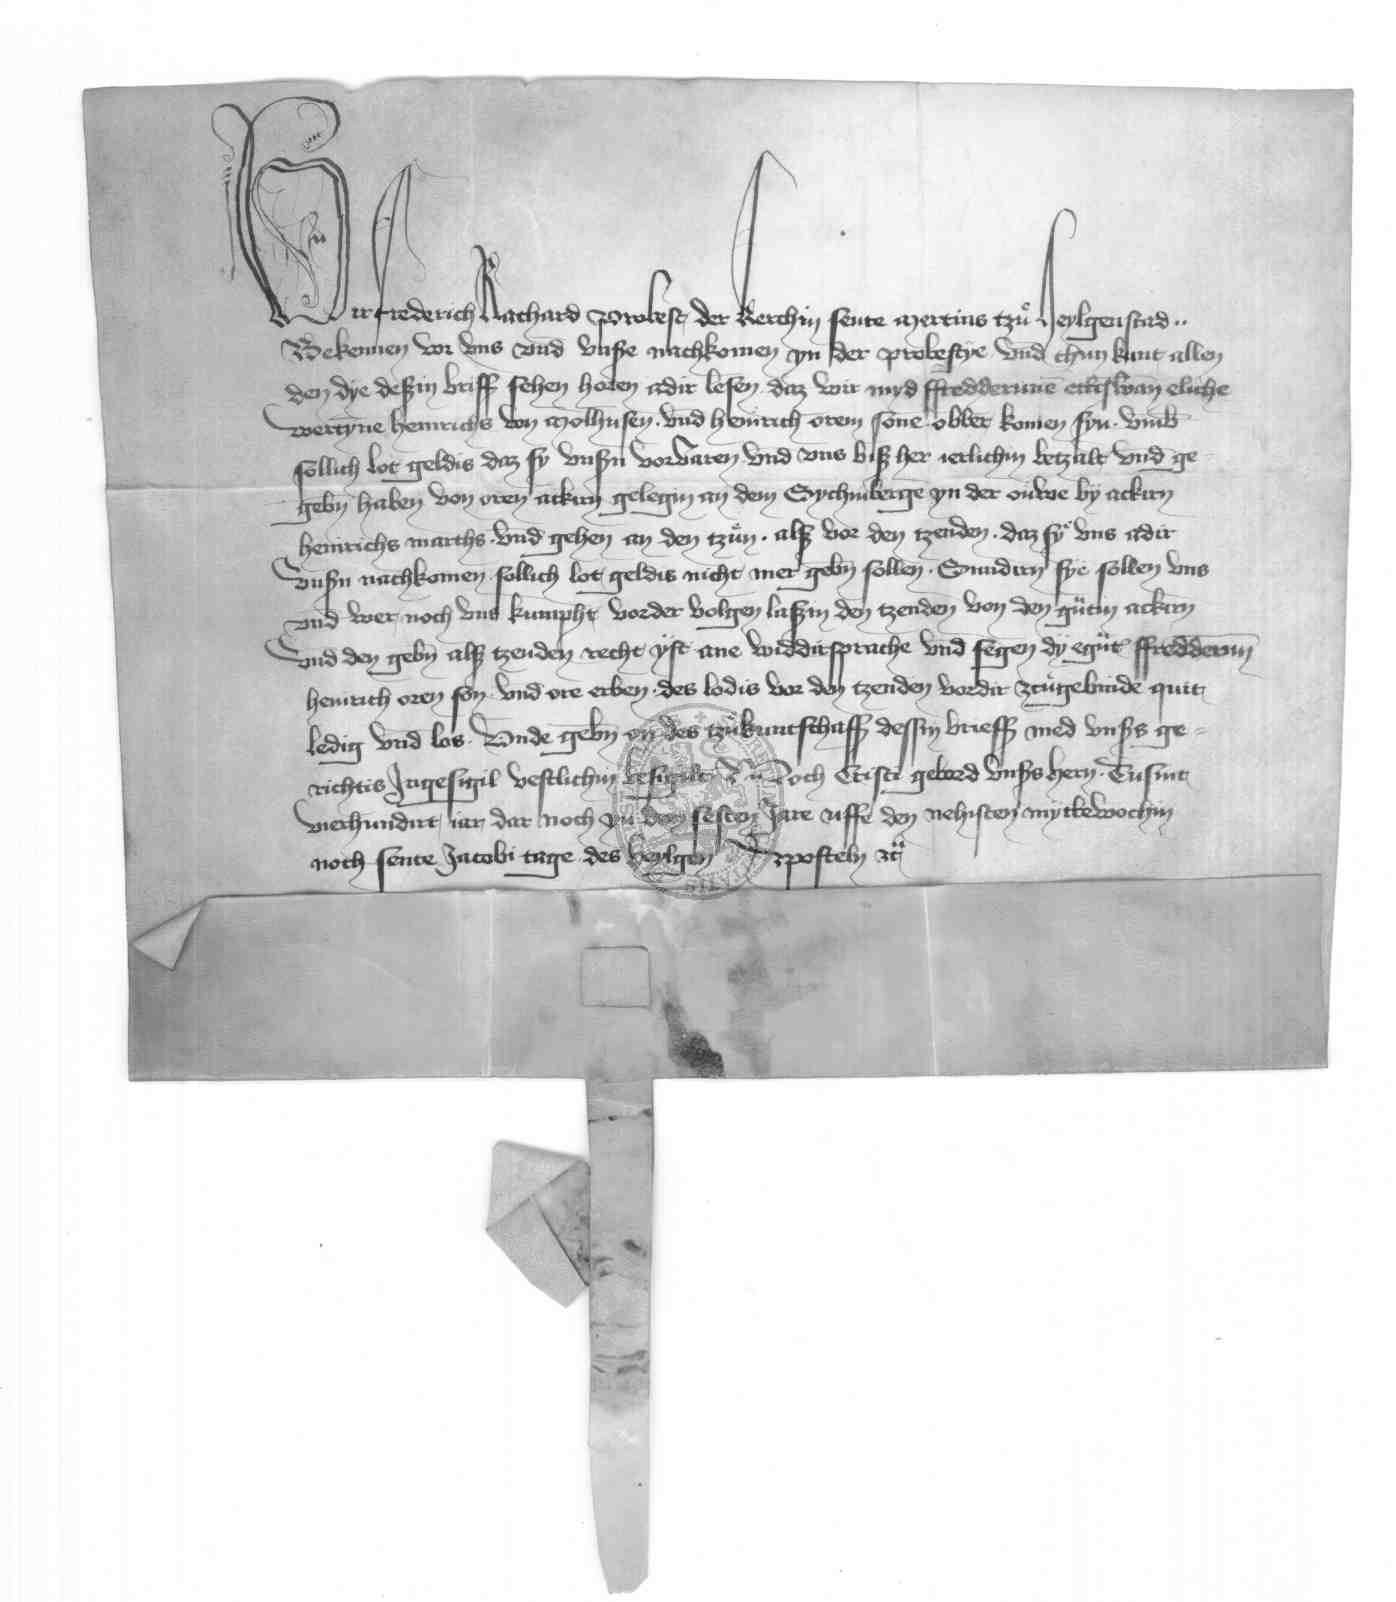 Wir frederich Rathard probest der kerchin sente mertins tzů heylgenstad ..
Bekennen vor vns vnd vnsße nachkomen yn der probestye vnd thun kunt allen
den dye deßin briff sehen horen adir lesen daz wir myd ffredderunē eliche
wertyne heinrichs von molhusen · vnd heinrich orem sone obber komen syn · vmb
sollich lot geldis daz sy vnßn vorvaren vnd vns biß her ierlichin betzalt vnd ge-
gebn haben von oren ackirn gelegin an dem Sychinberge yn der ouwe by ackirn
heinrichs marths · vnd gehen an den tzůn · alß vor den tzenden · daz sy vns adir
vnßn nachkomen sollich lot geldis nicht mer gebn sollen · Sundirn sye sollen vns
vnd wer noch vns kumpht vorder volgen laßin den tzenden von den gůtin ackirn
vnd den gebn alß tzenden recht yst ane widdirsprache vnd segen dy egůt ffredderun
heinrich oren son · vnd ore erben · des lodis vor den tzenden vordir quit
ledig vnd los · Vnde gebn on des tzů kuntschafft dessin brieff med vnßs ge-
richtis Ingesigil vestlichin besigilt Noch Cristi gebord vnßs hern · Tusint
vierhundirt iar dar noch yn dem sesten Jare uffe den nehisten myttewochin
noch sente Jacobi tage des heylgen Aposteln